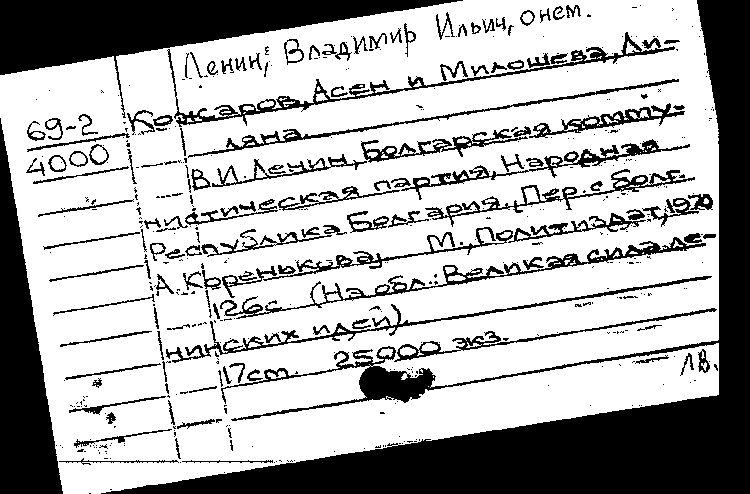 Ленин, Владимир Ильич, о нем.
69-2 Кожаров, Асен и Милошева, Ли-
4000 ляна.
В.И. Ленин, Болгарская комму-
нистическая партия, Народная
Республика Болгария. [Пер. с болг.
А. Коренькова]. М., Политиздат, 1970
126с. (На обл.: Великая сила ле-
нинских идей).
17см. 25000 экз.
ЛВ.